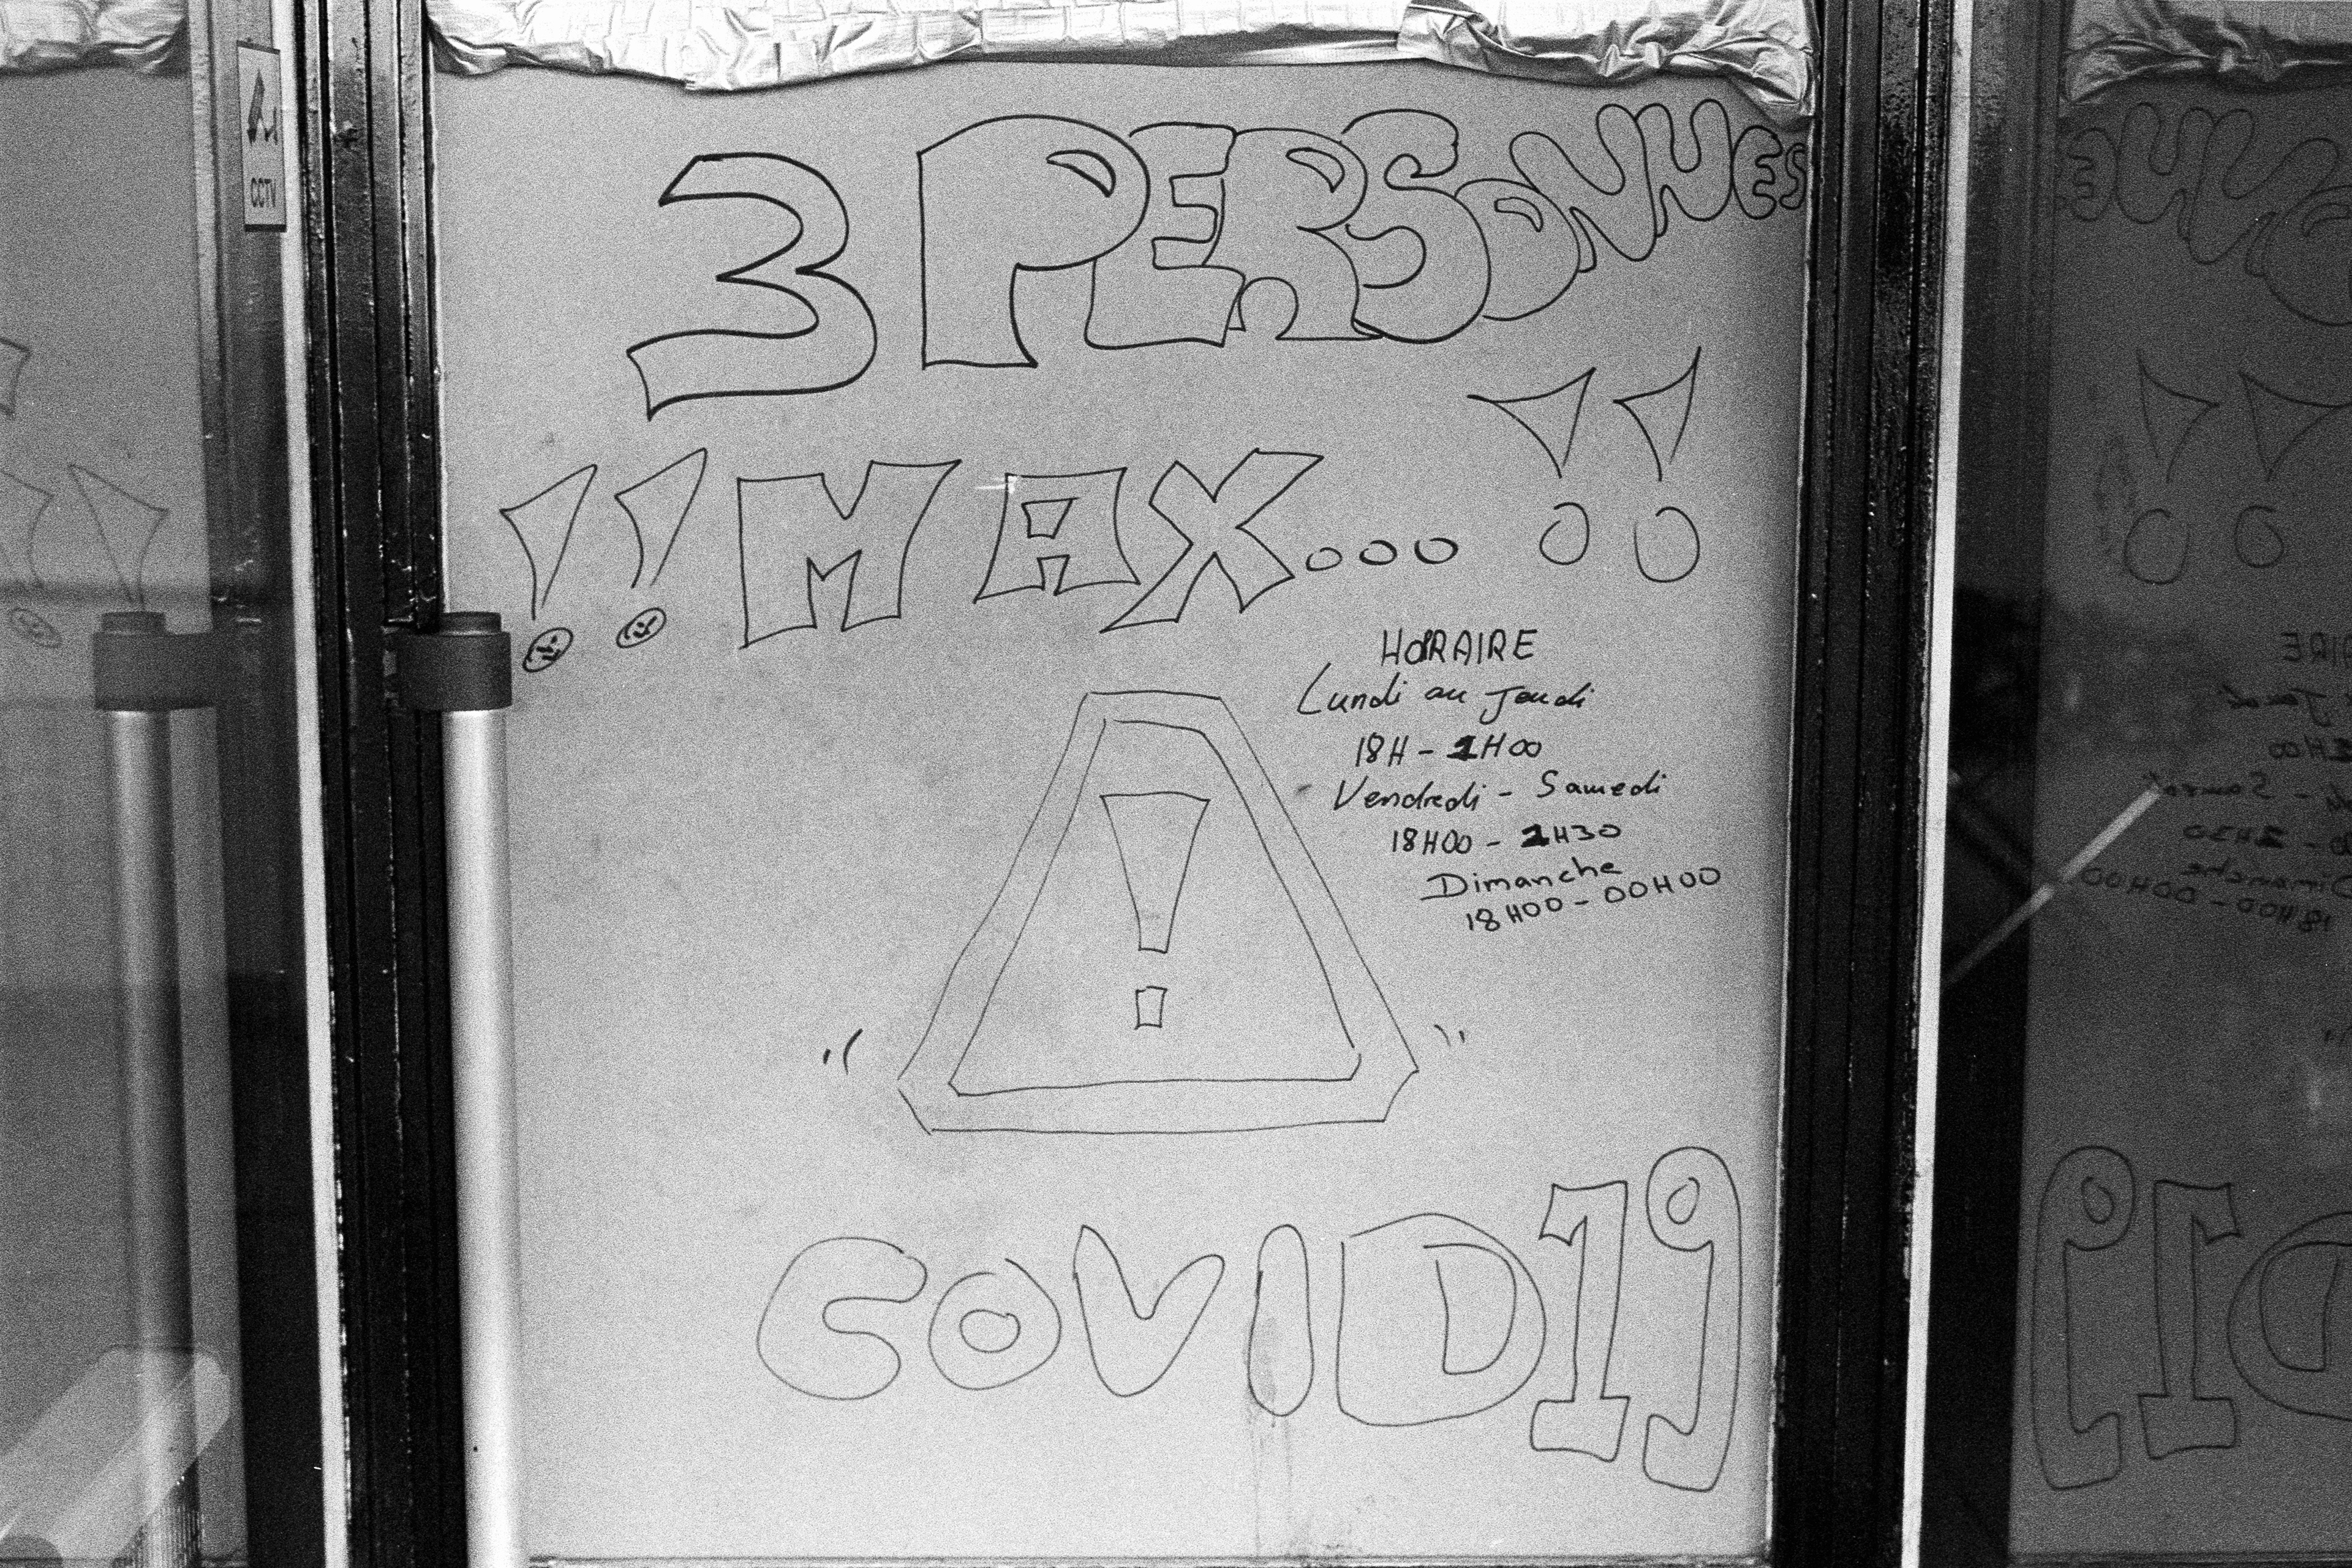 CCTV
3 PERSONNES
!! MAX... !!
HORAIRE
Lundi au Jeudi
18H - 1H00
Vendredi - Samedi
18H00 - 1H30
Dimanche
18H00 - 00H00
!
COVID19